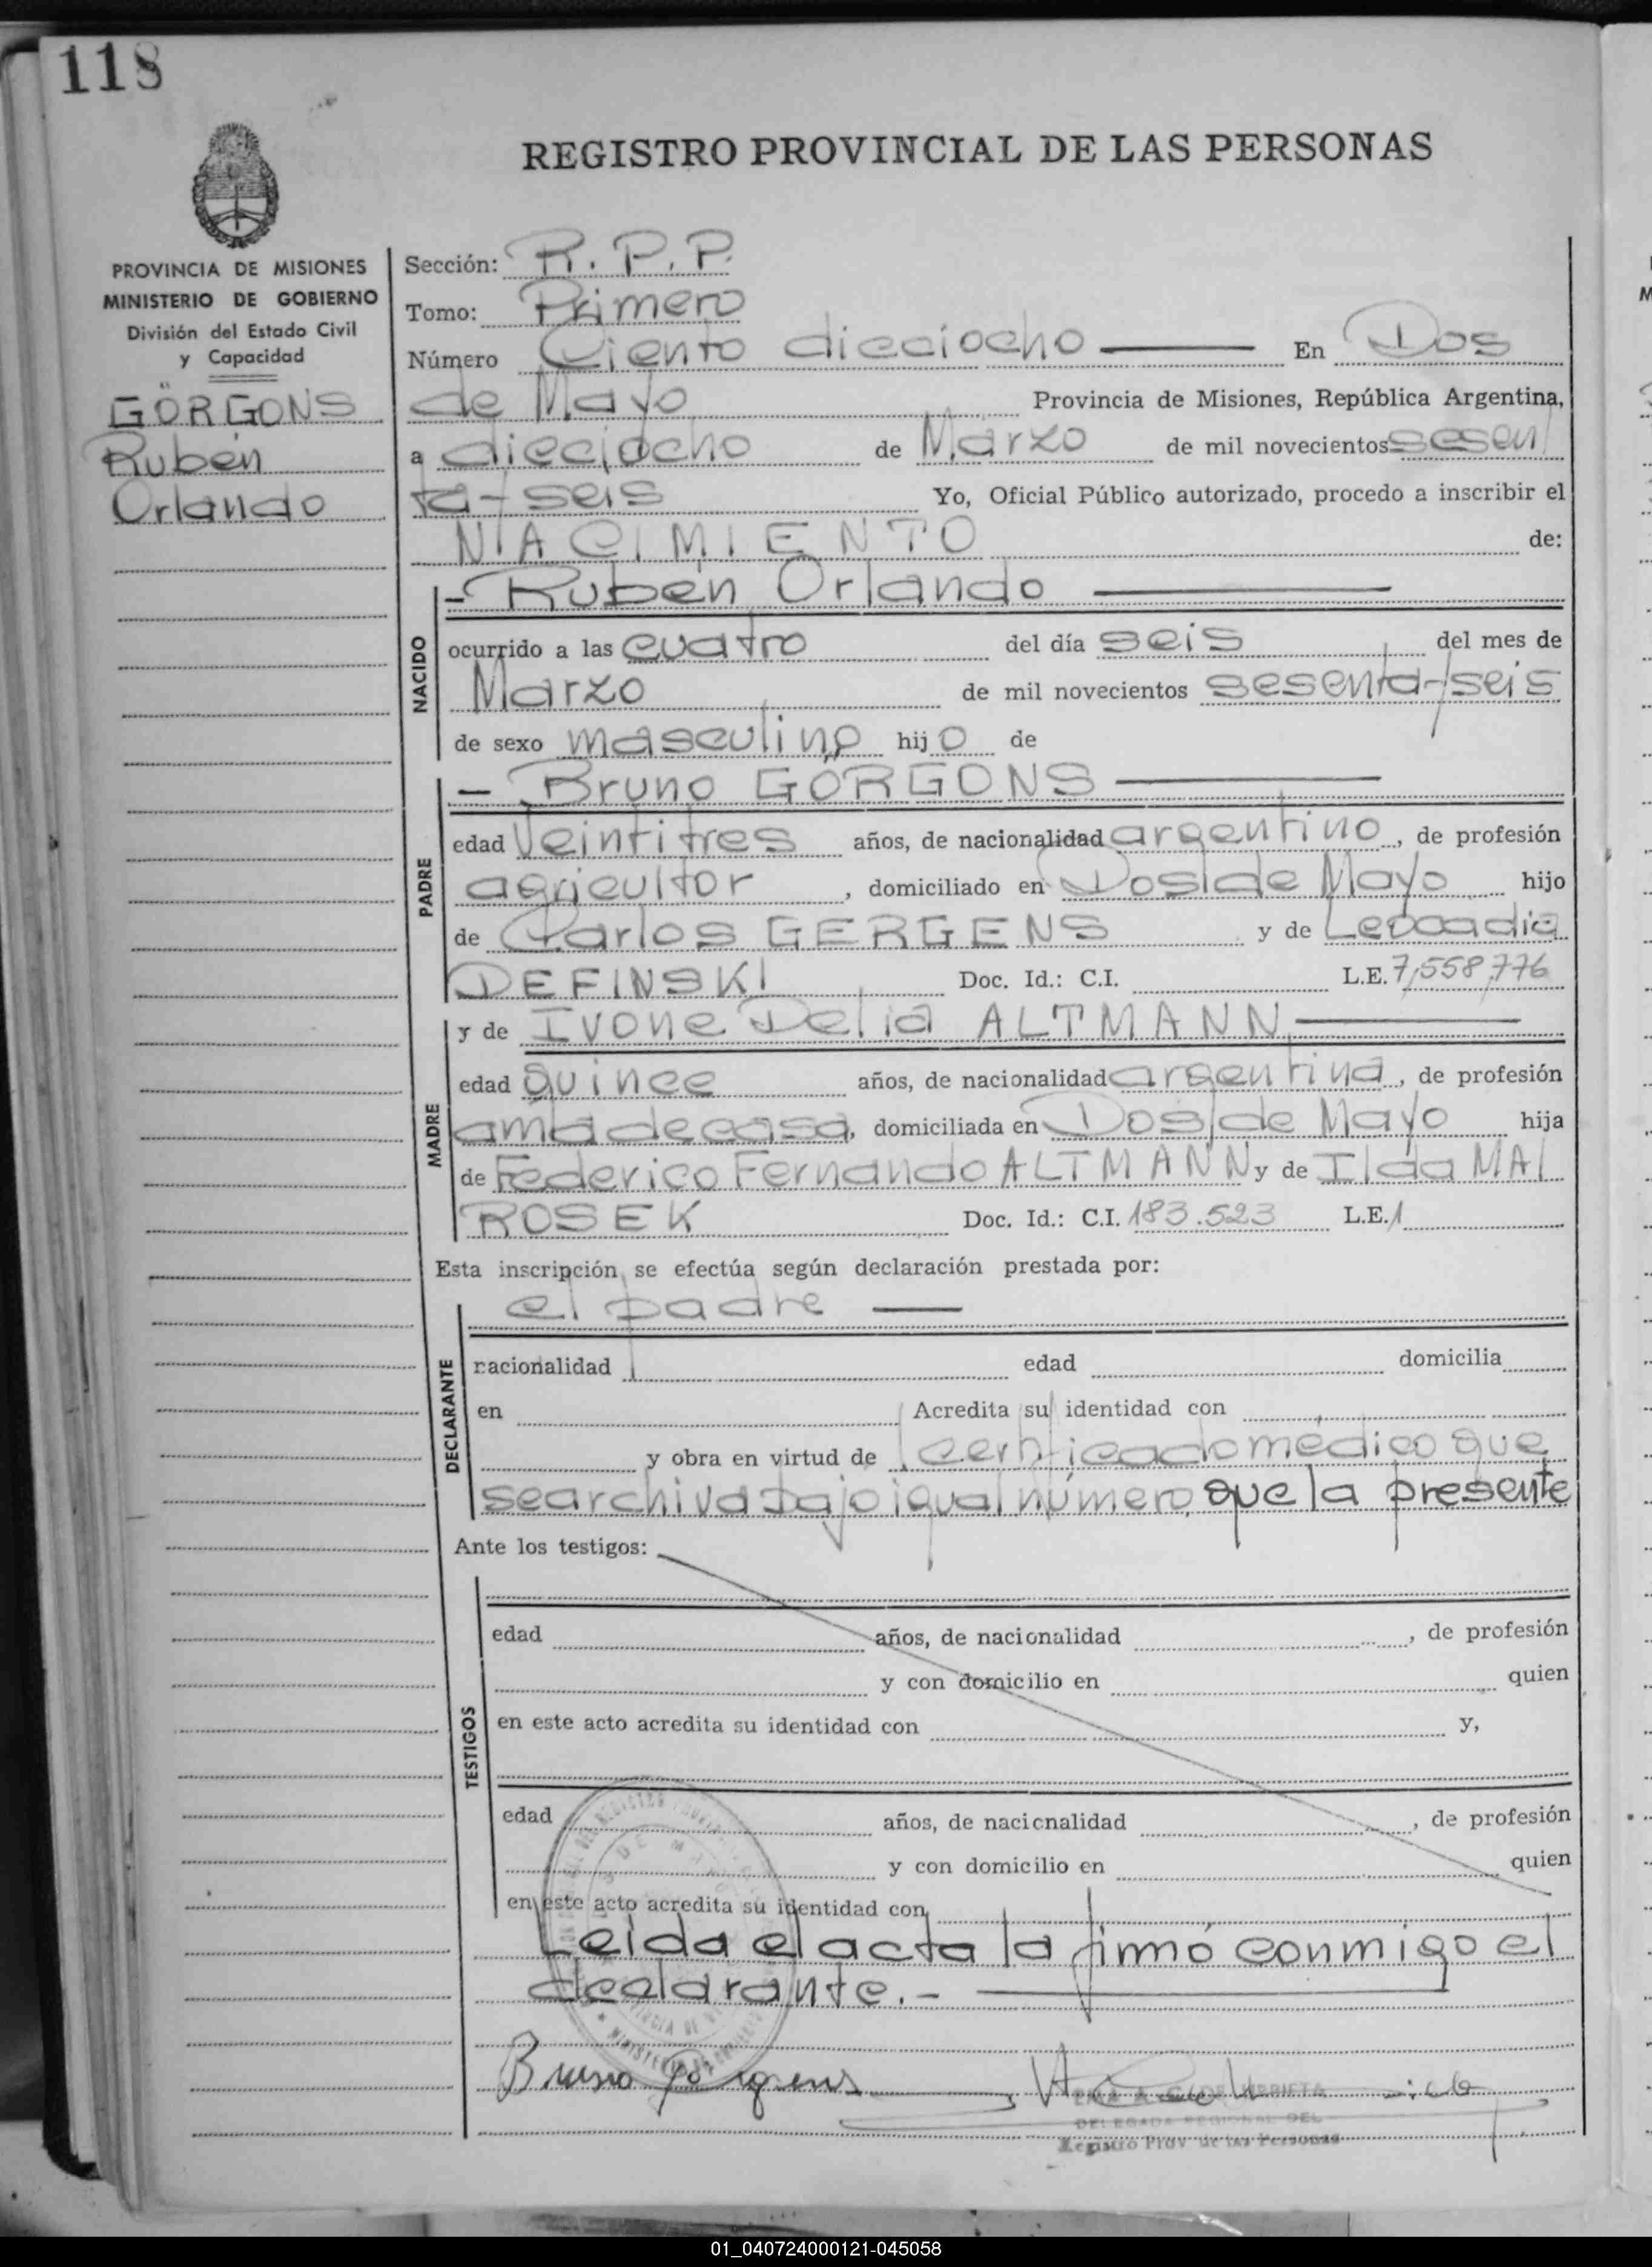 118
REGISTRO PROVINCIAL DE LAS PERSONAS
PROVINCIA DE MISIONES
MINISTERIO DE GOBIERNO
División del Estado Civil
y Capacidad
GÖRGONS
Rubén
Orlando
Sección: R.P.P.
Tomo: Primero
Número Ciento dieciocho En Dos
de Mayo Provincia de Misiones, República Argentina,
a dieciocho de Marzo de mil novecientos sesen
ta-seis Yo, Oficial Público autorizado, procedo a inscribir el
NACIMIENTO de:
NACIDO
- Ruben Orlando
ocurrido a las cuatro del día seis del mes de
Marzo de mil novecientos sesenta-seis
de sexo masculino hijo de
PADRE
- Bruno GÖRGONS
edad Veintitres años, de nacionalidad argentino, de profesión
agricultor, domiciliado en Dos de Mayo hijo
de Carlos GERGENS y de Leocadia
DEFINSKI Doc. Id.: C.I. L.E. 7,558,776
MADRE
y de Ivone Delia ALTMANN
edad quince años, de nacionalidad argentina, de profesión
ama de casa, domiciliada en Dos de Mayo hija
de Federico Fernando ALTMANN y de Ilda MAI
ROSEK Doc. Id.: C.I. 183.523 L.E.
Esta inscripción se efectúa según declaración prestada por:
DECLARANTE
el padre
nacionalidad edad domicilia
en Acredita su identidad con
y obra en virtud de certificado médico que
se archiva bajo igual número que la presente
Ante los testigos:
TESTIGOS
edad años, de nacionalidad , de profesión
y con domicilio en quien
en este acto acredita su identidad con y,
edad años, de nacionalidad , de profesión
y con domicilio en quien
en este acto acredita su identidad con
Leida el acta la firmó conmigo el
declarante.-
Bruno Görgens
DELEGADA REGIONAL DEL
Registro Prov. de las Personas
01_040724000121-045058